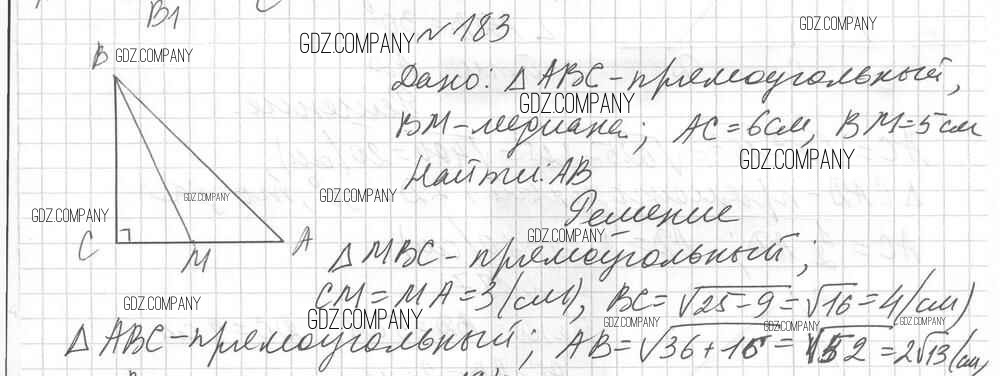 B1
№183
B
Дано: △ABC - прямоугольный,
BM - медиана; AC = 6 см, BM = 5 см
Найти: AB
Решение
C M A
△MBC - прямоугольный;
CM = MA = 3 (см), BC = √25-9 = √16 = 4 (см)
△ABC - прямоугольный; AB = √36+16 = √52 = 2√13 (см)
GDZ.COMPANY
GDZ.COMPANY
GDZ.COMPANY
GDZ.COMPANY
GDZ.COMPANY
GDZ.COMPANY
GDZ.COMPANY
GDZ.COMPANY
GDZ.COMPANY
GDZ.COMPANY
GDZ.COMPANY
GDZ.COMPANY
GDZ.COMPANY
GDZ.COMPANY